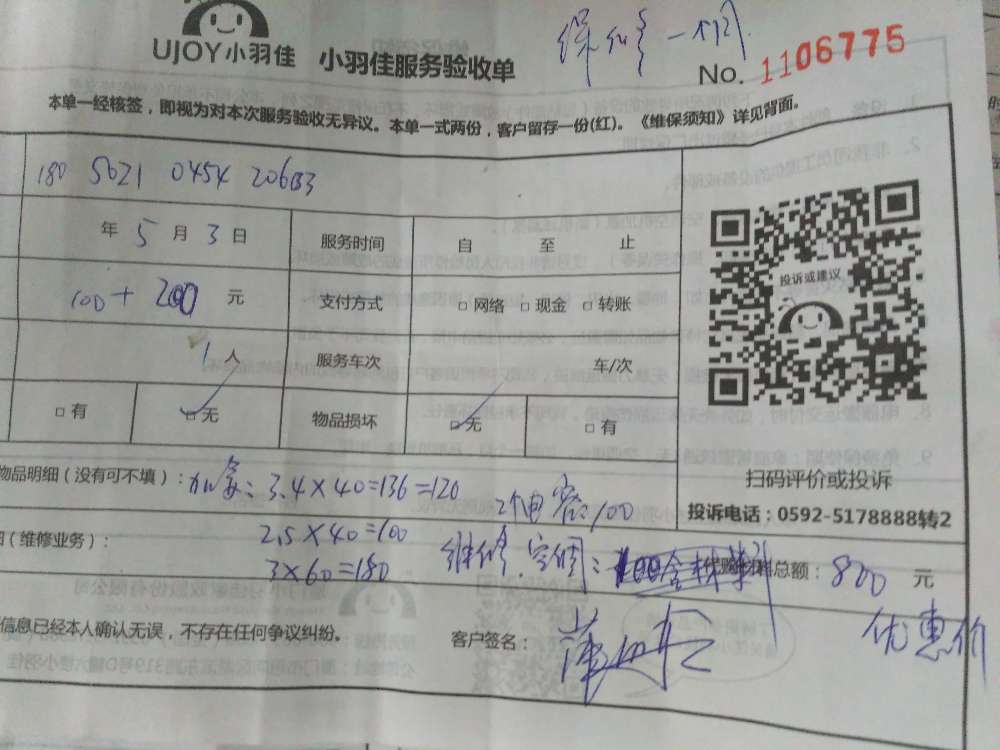 UJOY小羽佳 小羽佳服务验收单
保修一个月
No. 1106775
本单一经核签，即视为对本次服务验收无异议。本单一式两份，客户留存一份(红)。《维保须知》详见背面。
180 5021 0454
年 5 月 3 日 服务时间 自 至 止
100 + 200 元 支付方式 □ 网络 □ 现金 □ 转账
投诉或建议
1 人 服务车次 车/次
□ 有 □ 无 物品损坏 □ 无 □ 有
扫码评价或投诉
投诉电话：0592-5178888转2
物品明细（没有可不填）：加氟：3.4×40=136=120
2个电容：100
2.5×40=100
3×60=180
（维修业务）：
维修空调：
总额：800 元
优惠价
信息已经本人确认无误，不存在任何争议纠纷。 客户签名：